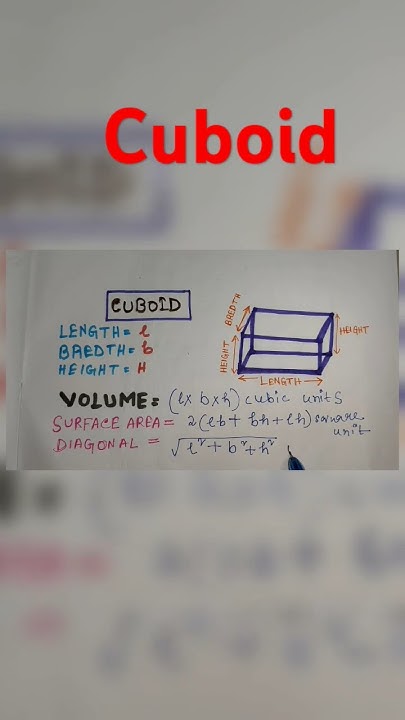 Cuboid
CUBOID
LENGTH = l
BREDTH = b
HEIGHT = H
BREDTH
HEIGHT
HEIGHT
LENGTH
VOLUME = (l x b x h) cubic units
SURFACE AREA = 2(lb + bh + lh) square unit
DIAGONAL = √l² + b² + h²